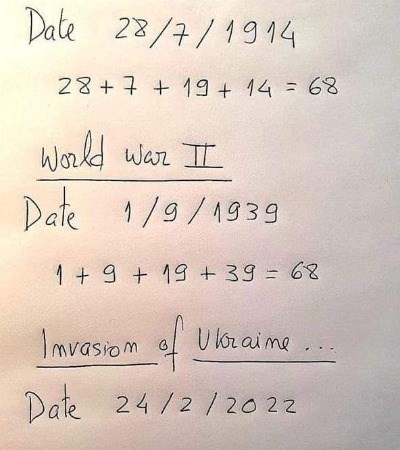 Date 28/7/1914
28 + 7 + 19 + 14 = 68
World War II
Date 1/9/1939
1 + 9 + 19 + 39 = 68
Invasion of Ukraine ...
Date 24/2/2022